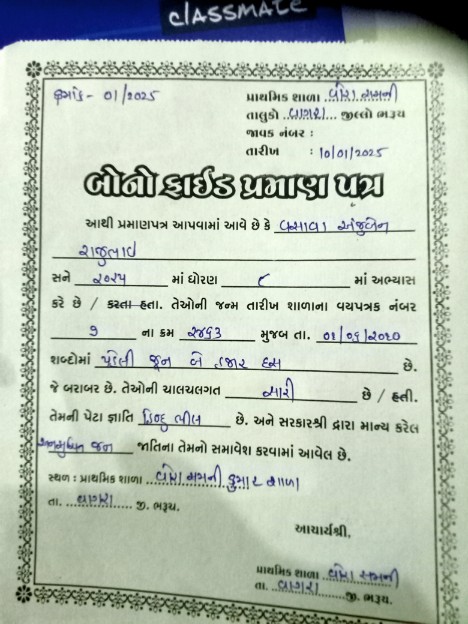 CLASSMATE
ક્રમાંક - 01/2025
પ્રાથમિક શાળા વોરા સમની
તાલુકો વાગરા જીલ્લો ભરૂચ
જાવક નંબર :
તારીખ : 10/01/2025
બોનો ફાઈડ પ્રમાણ પત્ર
આથી પ્રમાણપત્ર આપવામાં આવે છે કે વસાવા અંજુબેન
રાજુભાઇ
સને ૨૦૨૫ માં ધોરણ ૮ માં અભ્યાસ
કરે છે / કરતા હતા. તેઓની જન્મ તારીખ શાળાના વયપત્રક નંબર
૭ ના ક્રમ ૨૪૬૩ મુજબ તા. ૦૧/૦૬/૨૦૧૦
શબ્દોમાં પહેલી જૂન બે હજાર દસ છે.
જે બરાબર છે. તેઓની ચાલચલગત સારી છે / હતી.
તેમની પેટા જ્ઞાતિ હિન્દુ ભીલ છે. અને સરકારશ્રી દ્રારા માન્ય કરેલ
અનુસૂચિત જન જાતિના તેમનો સમાવેશ કરવામાં આવેલ છે.
સ્થળ : પ્રાથમિક શાળા વોરા સમની કુમાર શાળા
તા. વાગરા જી. ભરૂચ.
આચાર્યશ્રી,
પ્રાથમિક શાળા વોરા સમની
તા. વાગરા જી. ભરૂચ.